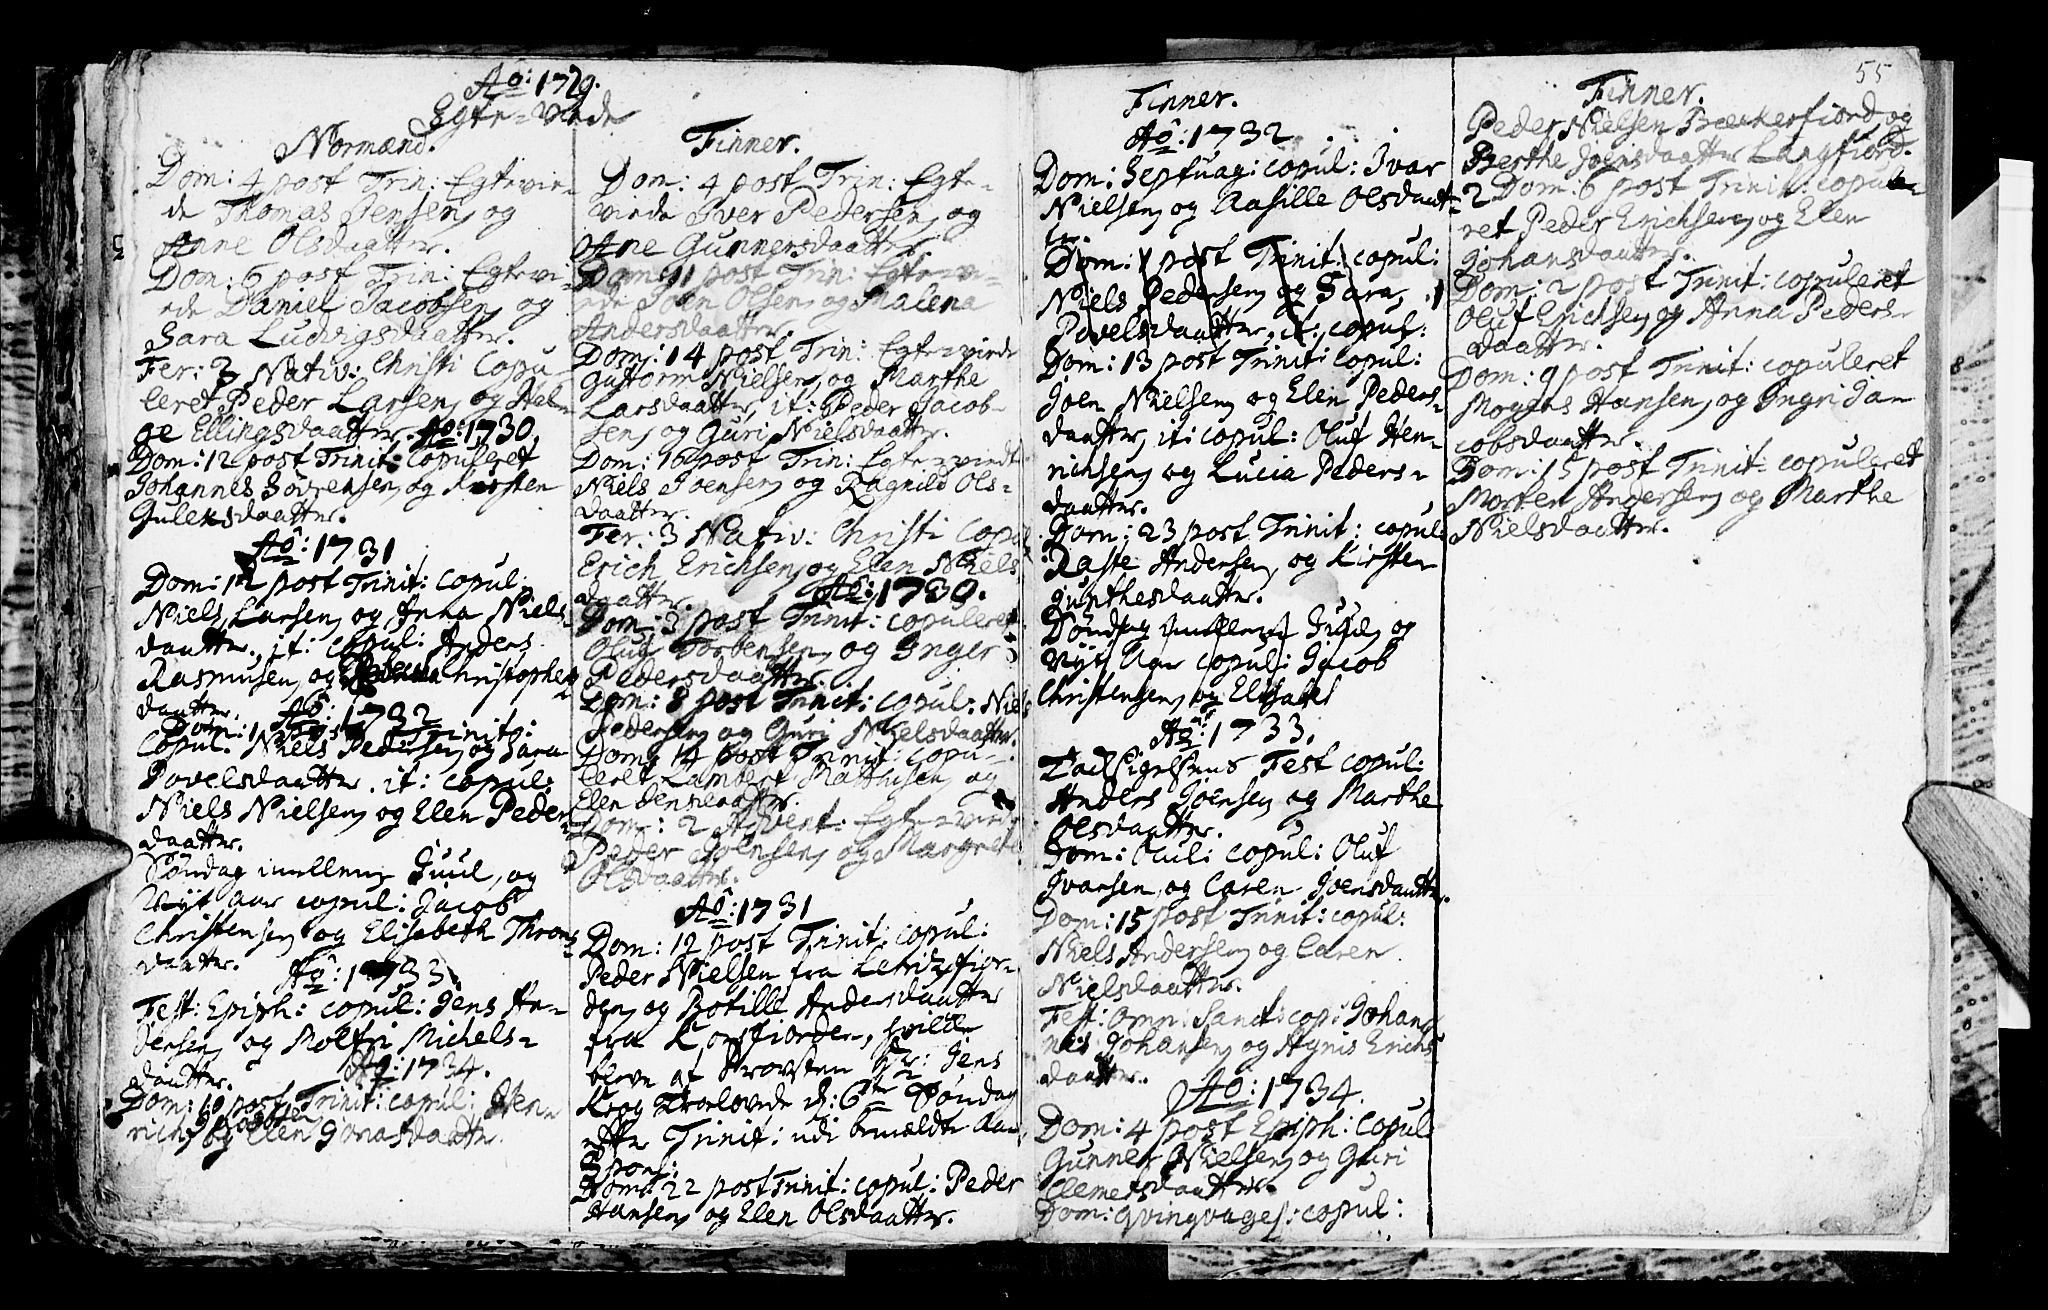 Ao: 1729.
Egte-viede
Normænd.
Dom: 4 post Trin: Egtevie-
de Thomas Jensen og
Anne Olsdaatter.
Dom: 6 post Trin: Egtevi-
ede Daniel Jacobsen og
Sara Ludvigsdaatter.
Fer: 3 Nativ: Christi Copu
leret Peder Larsen og Hel-
ge Ellingsdaatter. Ao: 1730.
Dom: 12 post Trinit: Copuleret
Johannes Sövrensen og Kirsten
Guleksdaatter.
Ao: 1731
Dom: 12 post Trinit: copul:
Niels Larsen og Anna Niels-
daatter. it: copul: Anders
Rasmusen og Christophers
daatter. Ao: 1732
Dom: 1 post Trinit:
copul: Niels Pedersen og Sara
Povelsdaatter. it: copul:
Niels Nielsen og Elen Peders
daatter.
Söndag imellem Juul og
Nyt Aar copul: Jacob
Christensen og Elisabeth Throns-
daatter. Ao: 1733.
Fest: Epiph: copul: Jens An-
dersen og Molfri Michels-
daatter. Ao: 1734.
Dom: 10 post Trinit: copul: Hen-
rich og Elen Jonasdaatter.
Finner.
Dom: 4 post Trin: Egte-
viede Iver Pedersen og
Ane Gunnersdaatter.
Dom: 11 post Trin: Egtevi-
ede Joen Olsen og Malena
Andersdaatter.
Dom: 14 post Trin: Egte-viede
Guttorm Nielsen og Marthe
Larsdaatter, it: Peder Jacob-
sen og Guri Nielsdaatter.
Dom: 16 post Trin: Egte-viedt
Niels Joensen og Ragnild Ols-
daatter.
Fer: 3 Nativ: Christi Copul
Erich Erichsen og Elen Niels
daatter. Ao: 1730.
Dom: 3 post Trinit: copuleret
Oluf Torbensen og Inger
Pedersdaatter.
Dom: 8 post Trinit: copul: Niels
Pedersen og Guri Nielsdaatter.
Dom: 14 post Trinit: copu-
leret Lambert Matthisen og
Elen daatter.
Dom: 2 Advent: Egte-viede
Peder Joensen og Margret
Olsdaatter.
Ao: 1731
Dom: 12 post Trinit: copul:
Peder Nielsen fra fior-
den og Botille Andersdaatter
fra Korsfiorden, hvilke
bleve af Provsten Hr: Jens
Krog Trolovede d: 6te Söndag
efter Trinit: udi bemældte Aar
Dom: 22 post Trinit: copul: Peder
Hansen og Elen Olsdaatter.
Finner.
Ao: 1732
Dom: Septuag: copul: Ivar
Nielsen og Rasille Olsdaat-
ter.
Dom: 1 post Trinit: copul:
Niels Pedersen og Sara
Povelsdaatter, it: copul:
Dom: 13 post Trinit: Copul:
Joen Nielsen og Elen Peders-
daatter, it: copul: Oluf Hen-
richsen og Lucia Peders-
daatter.
Dom: 23 post Trinit: copul:
Raste Andersen og Kirsten
Gunthesdaatter.
Söndag imellem Juul og
Nyt Aar copul: Jacob
Christensen og Elisabet
Ao: 1733.
Fest copul:
Anders Joensen og Marthe
Olsdaatter.
Dom: Oculi copul: Oluf
Ivarsen og Caren Joensdaatter.
Dom: 15 post Trinit: copul:
Niels Andersen og Caren
Nielsdaatter.
Fest: omn: Sanct: cop: Johan-
nes Johansen og Agnis Erichs
daatter.
Ao: 1734.
Dom: 4 post Epiph: Copul
Gunner Nielsen og Guri
Clemetsdaatter.
Dom: qvinqvages: copul:
55
Finner.
Peder Nielsen Beckerfiord og
Berthe Joensdaatter Langfiord.
2 Dom: 6 post Trinit: copule-
ret Peder Erichsen og Elen
Johansdaatter.
Dom: 2 post Trinit: copuleret
Oluf Erichsen og Anna Peders-
daatter.
Dom: 9 post Trinit: copuleret
Mogens Hansen og Ingri Ja-
cobsdaatter.
Dom: 15 post Trinit: copuleret
Morten Andersen og Marthe
Nielsdaatter.